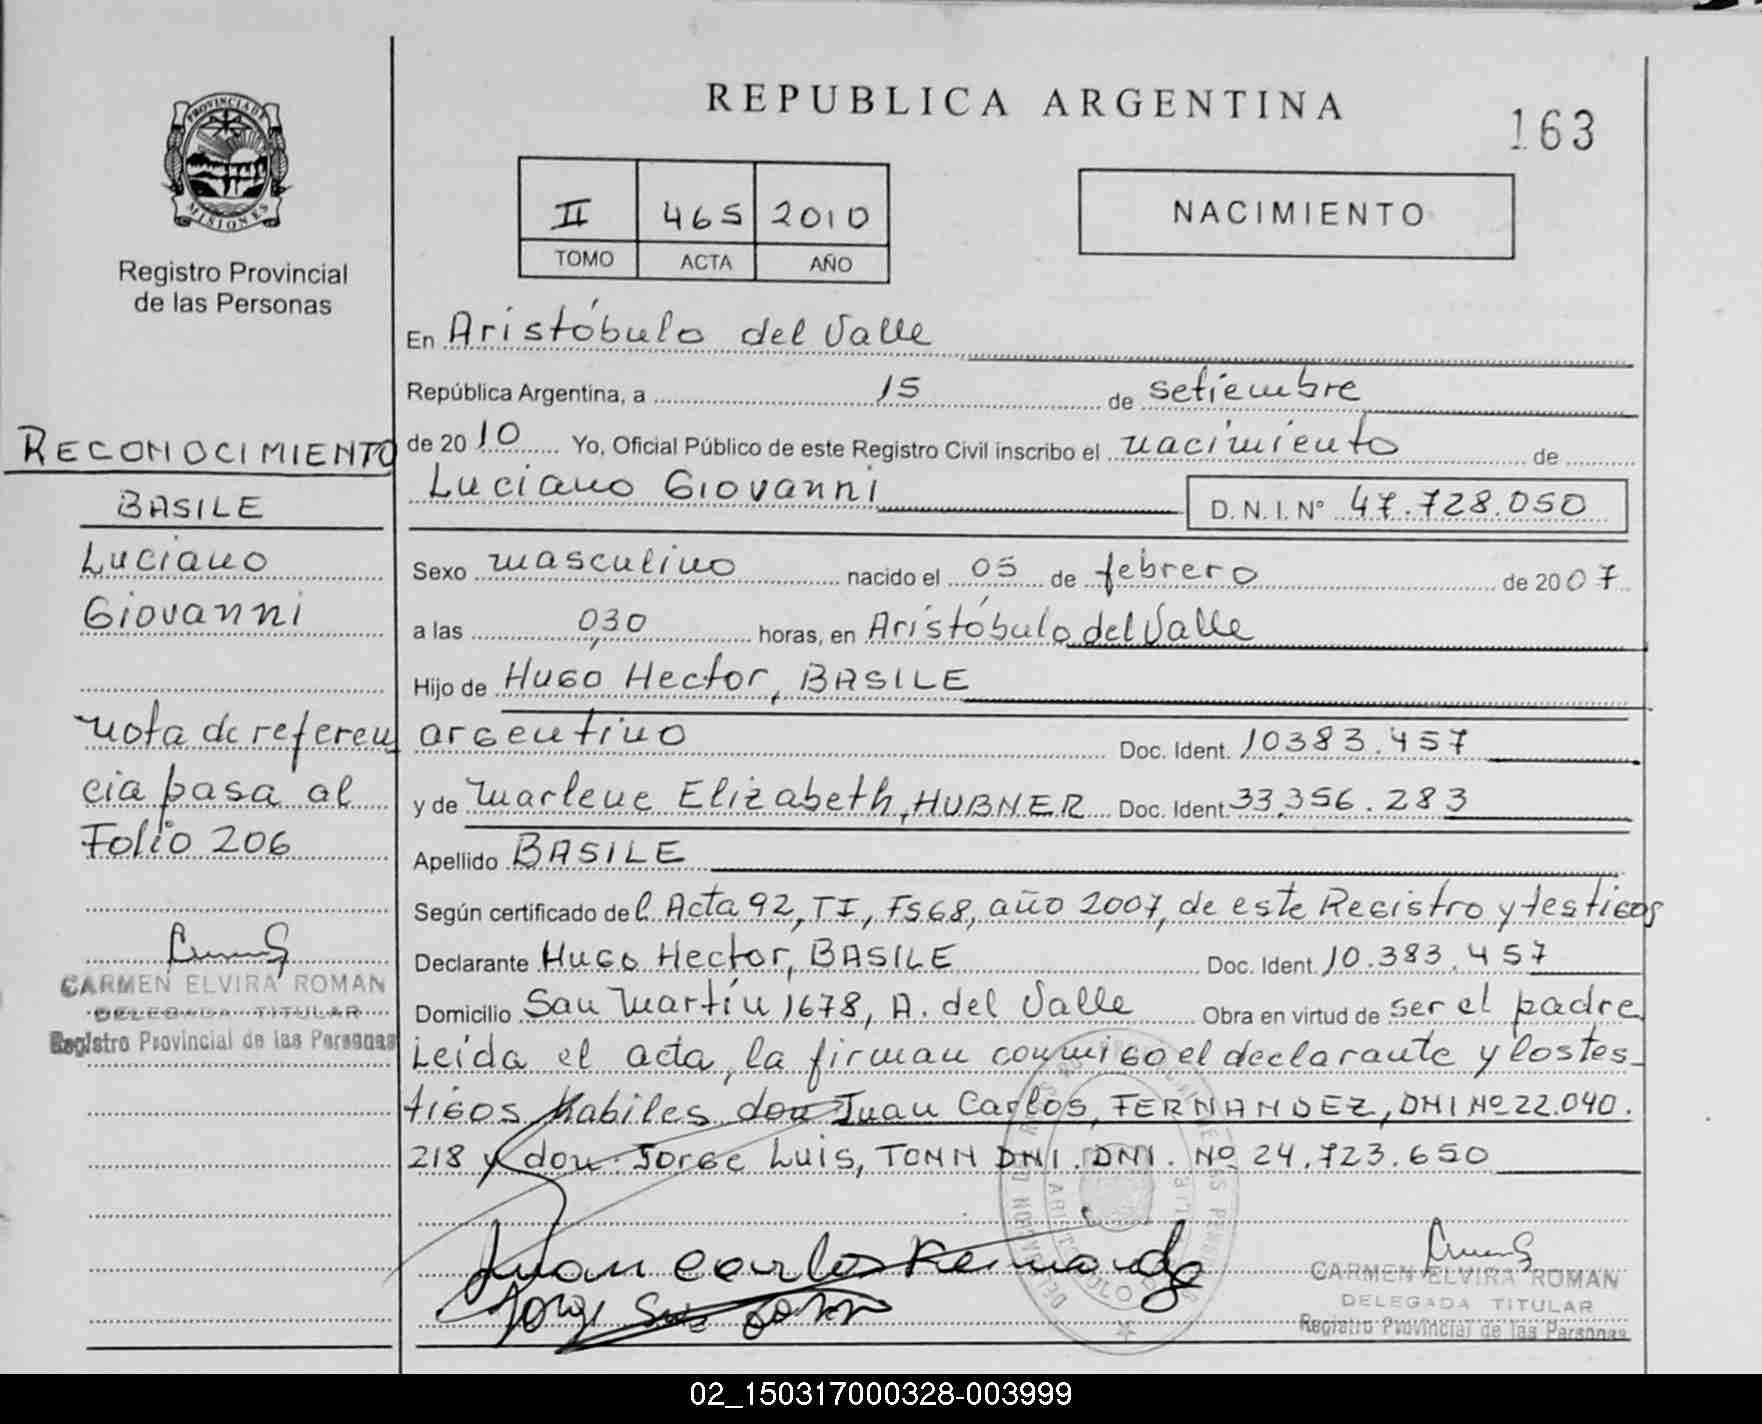 REPUBLICA ARGENTINA
163
PROVINCIA DE
MISIONES
Registro Provincial
de las Personas
II 465 2010
TOMO ACTA AÑO
NACIMIENTO
En Aristóbulo del Valle
República Argentina, a 15 de setiembre
de 2010 Yo, Oficial Público de este Registro Civil inscribo el nacimiento de
Luciano Giovanni
D. N. I. Nº 47.728.050
Sexo masculino nacido el 05 de febrero de 2007
a las 0,30 horas, en Aristóbulo del Valle
Hijo de Hugo Hector, BASILE
argentino Doc. Ident. 10383.457
y de Marlene Elizabeth, HUBNER Doc. Ident. 33.356.283
Apellido BASILE
Según certificado del Acta 92, TI, Fs68, año 2007, de este Registro y testigos
Declarante Hugo Hector, BASILE Doc. Ident. 10.383.457
Domicilio San Martín 1678, A. del Valle Obra en virtud de ser el padre
Leída el acta, la firman conmigo el declarante y los tes-
tigos habiles don Juan Carlos, FERNANDEZ, DNI Nº 22.040.
218 y don Jorge Luis, TONN DNI. DNI. Nº 24.723.650
Juan Carlos Fernandez
CARMEN ELVIRA ROMAN
DELEGADA TITULAR
Registro Provincial de las Personas
RECONOCIMIENTO
BASILE
Luciano
Giovanni
nota de referen
cia pasa al
Folio 206
CARMEN ELVIRA ROMAN
DELEGADA TITULAR
Registro Provincial de las Personas
02_150317000328-003999